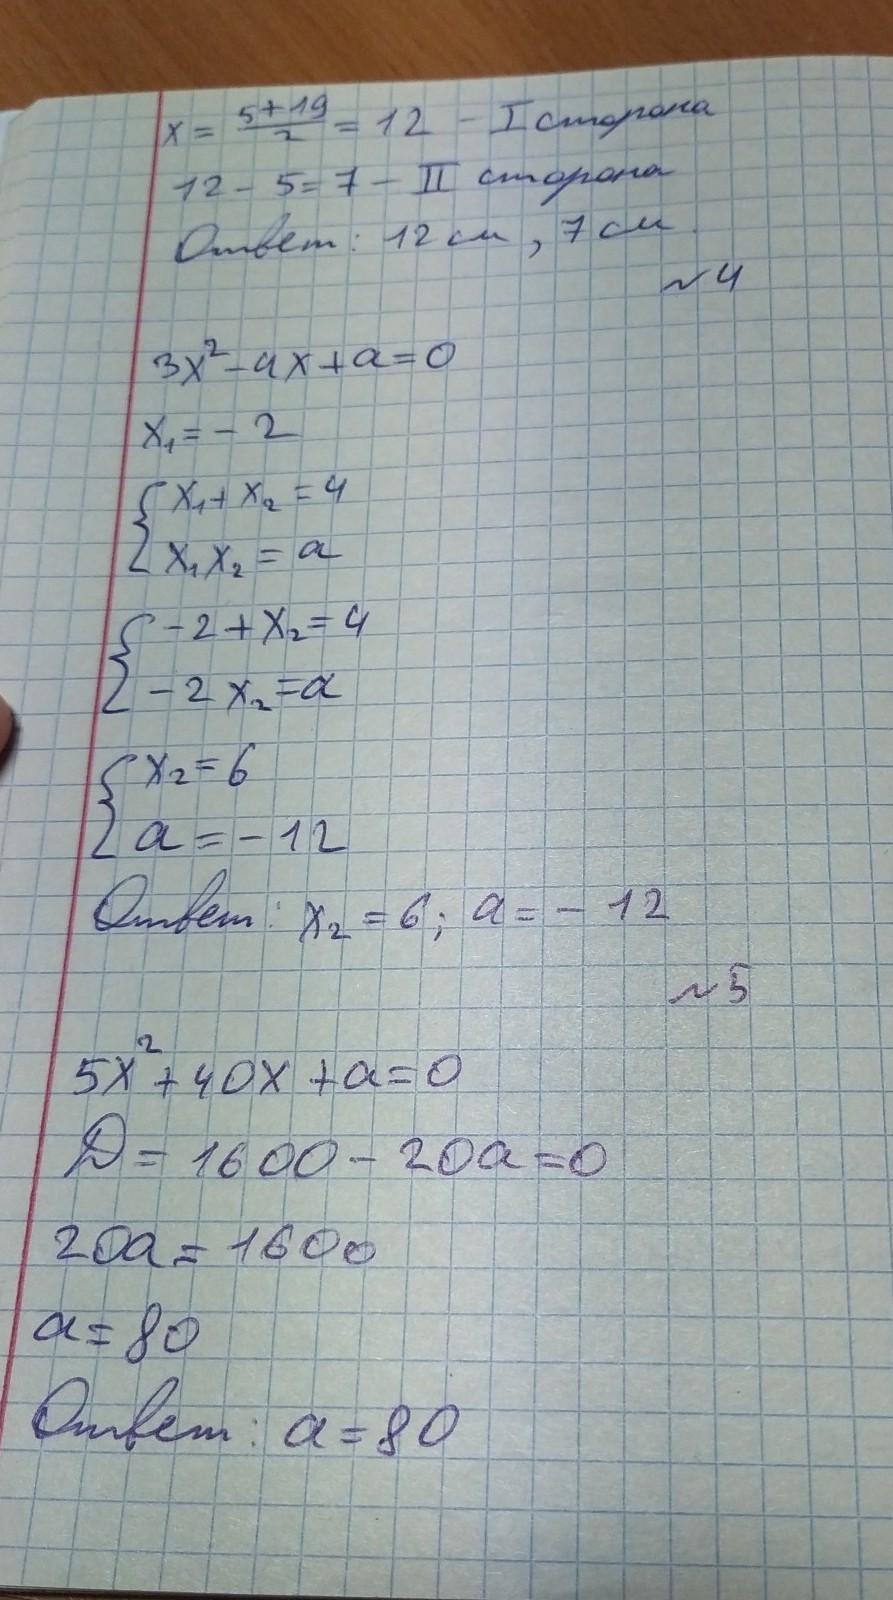 x = (5+19)/2 = 12 - I сторона
12 - 5 = 7 - II сторона
Ответ: 12 см, 7 см.
~4
3x² - ax + a = 0
x₁ = - 2
{ x₁ + x₂ = 4
x₁x₂ = a
{ -2 + x₂ = 4
-2x₂ = a
{ x₂ = 6
a = -12
Ответ: x₂ = 6; a = - 12
~5
5x² + 40x + a = 0
D = 1600 - 20a = 0
20a = 1600
a = 80
Ответ: a = 80